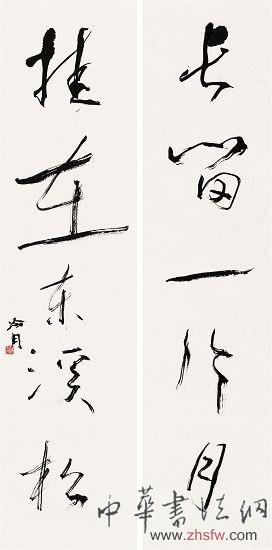 长留一片月
挂在东溪松
冷月
中華書法網
www.zhsfw.com